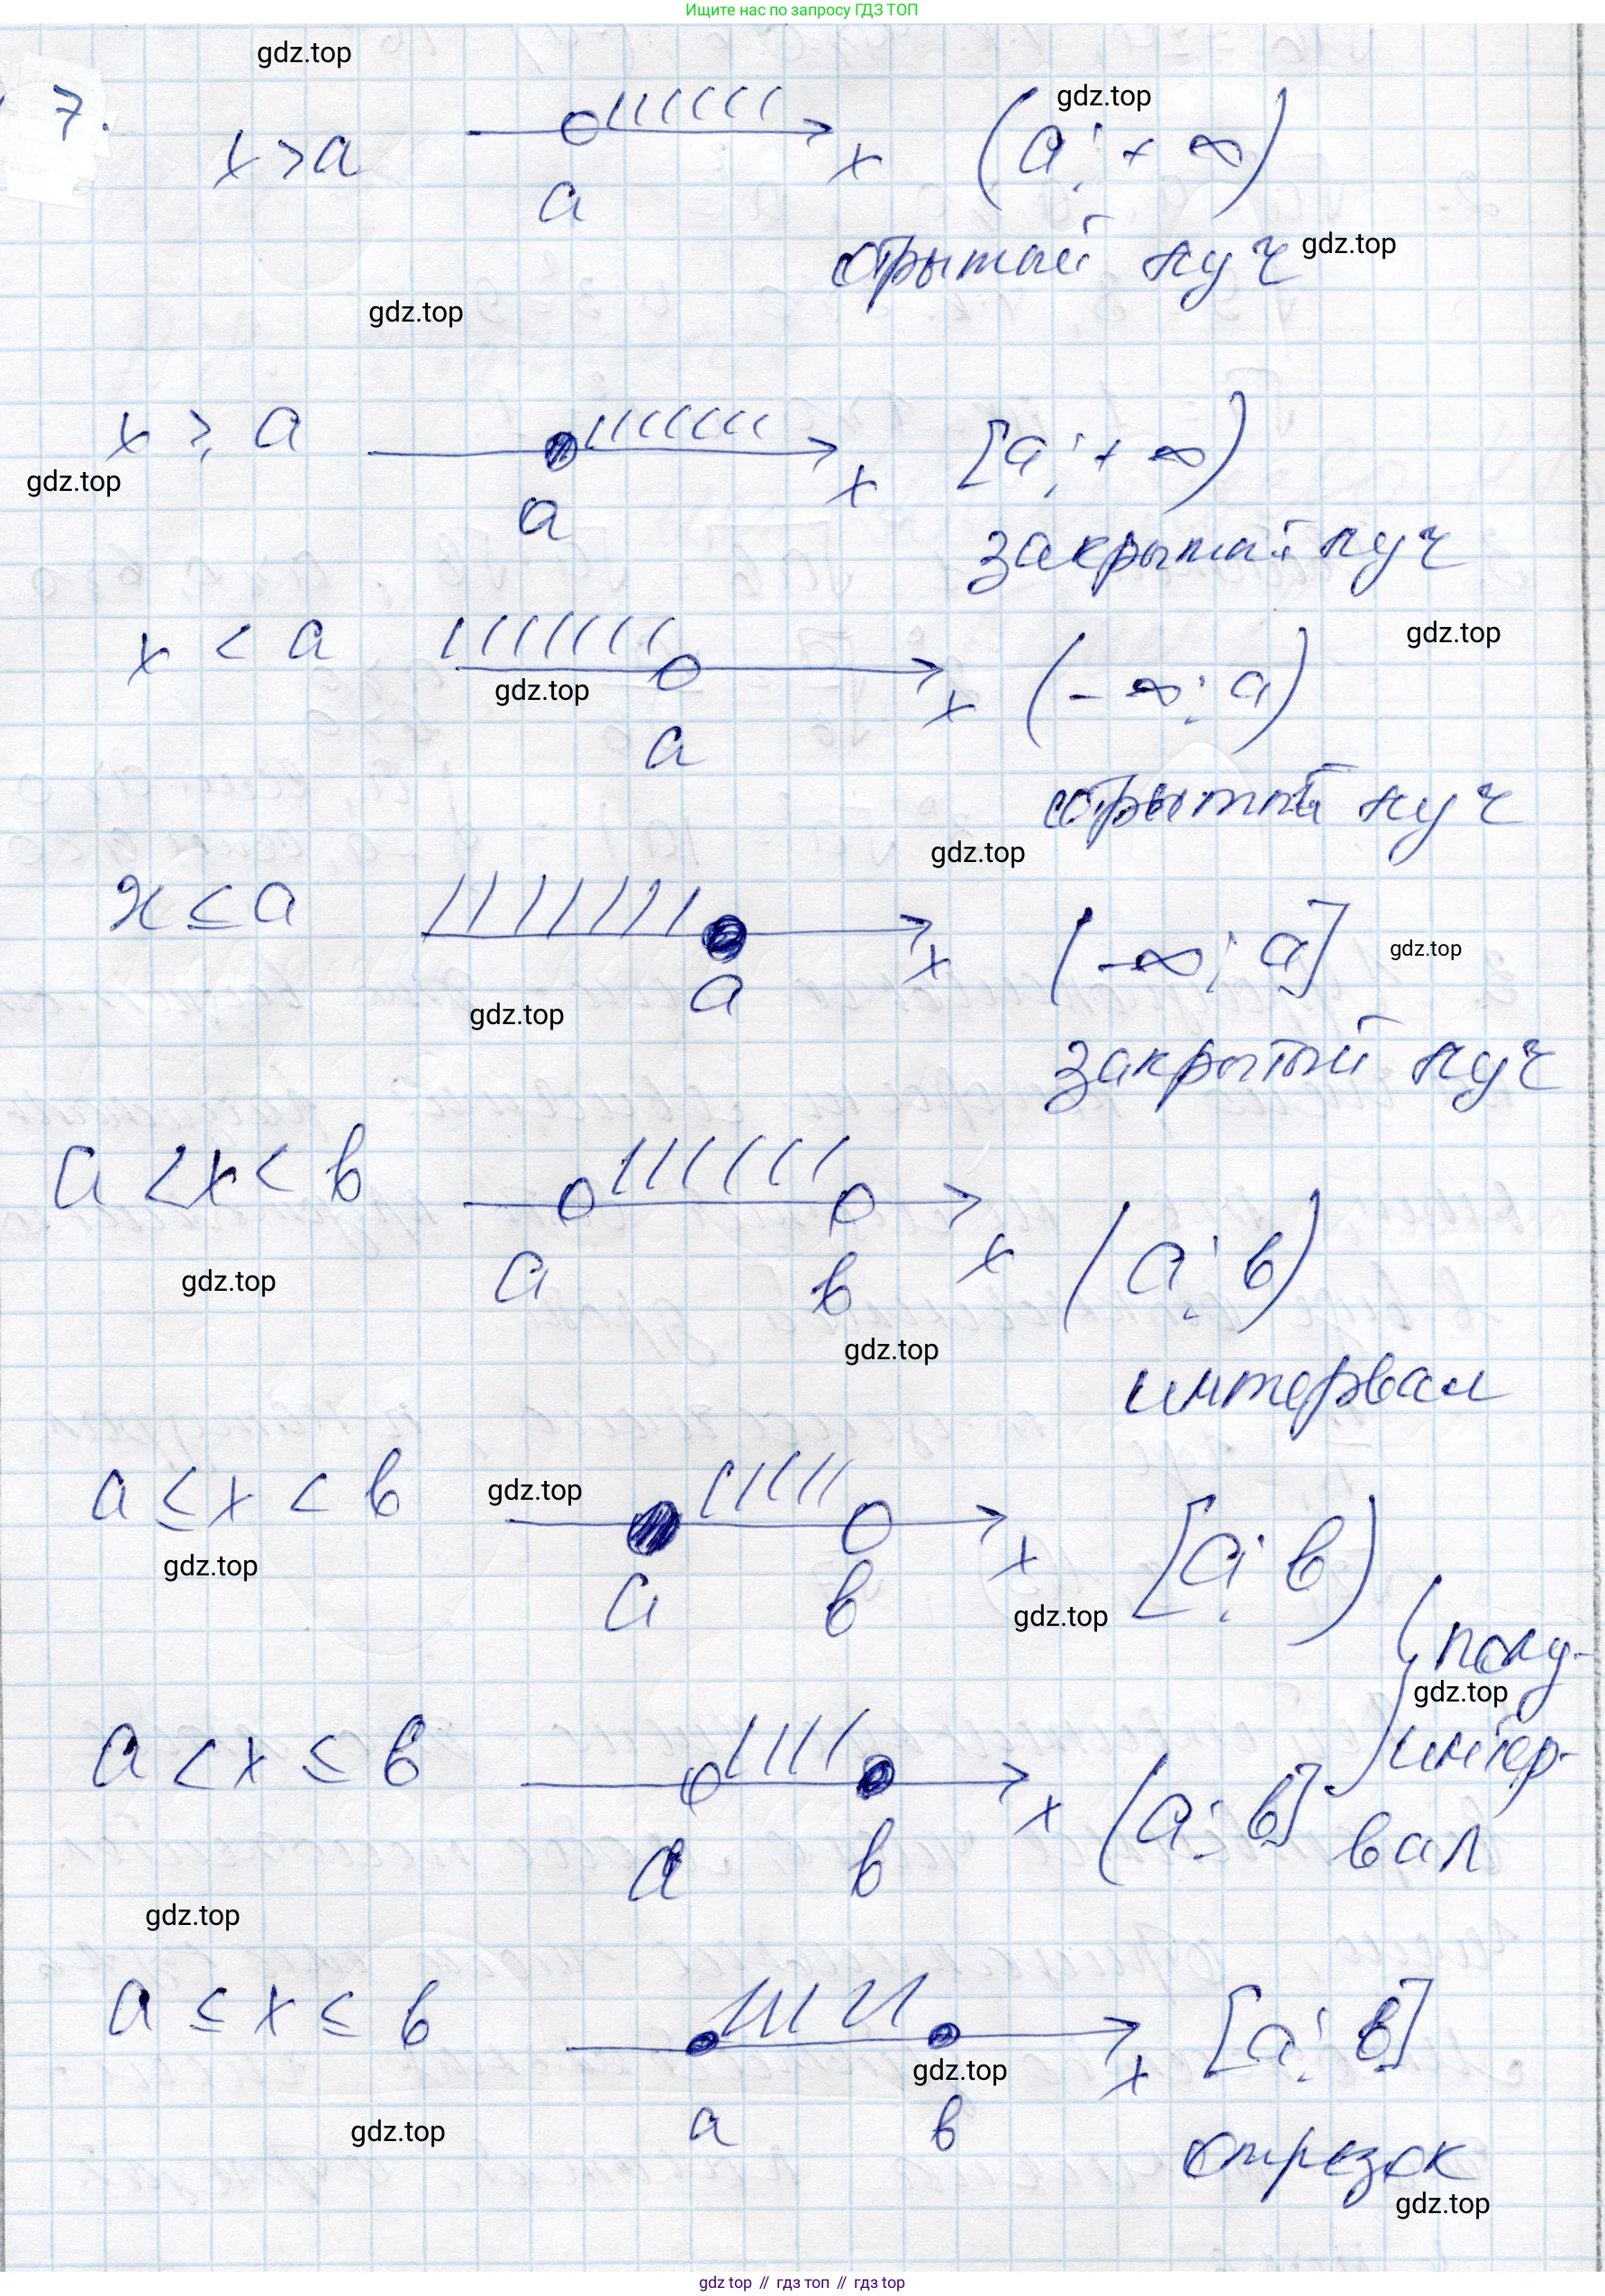 Ищите нас по запросу ГДЗ ТОП
gdz.top
7.
x > a
a
x
(a; +∞)
gdz.top
открытый луч
gdz.top
gdz.top
x ≥ a
a
x
[a; +∞)
gdz.top
закрытый луч
x < a
gdz.top
a
x
(-∞; a)
gdz.top
открытый луч
gdz.top
x ≤ a
a
x
(-∞; a]
gdz.top
gdz.top
закрытый луч
a < x < b
a
b
x
(a; b)
gdz.top
gdz.top
интервал
a ≤ x < b
gdz.top
a
b
x
[a; b)
gdz.top
gdz.top
полу-
gdz.top
интер-
вал
a < x ≤ b
a
b
x
(a; b]
gdz.top
a ≤ x ≤ b
gdz.top
a
b
x
[a; b]
gdz.top
отрезок
gdz.top
gdz top // гдз топ // гдз top